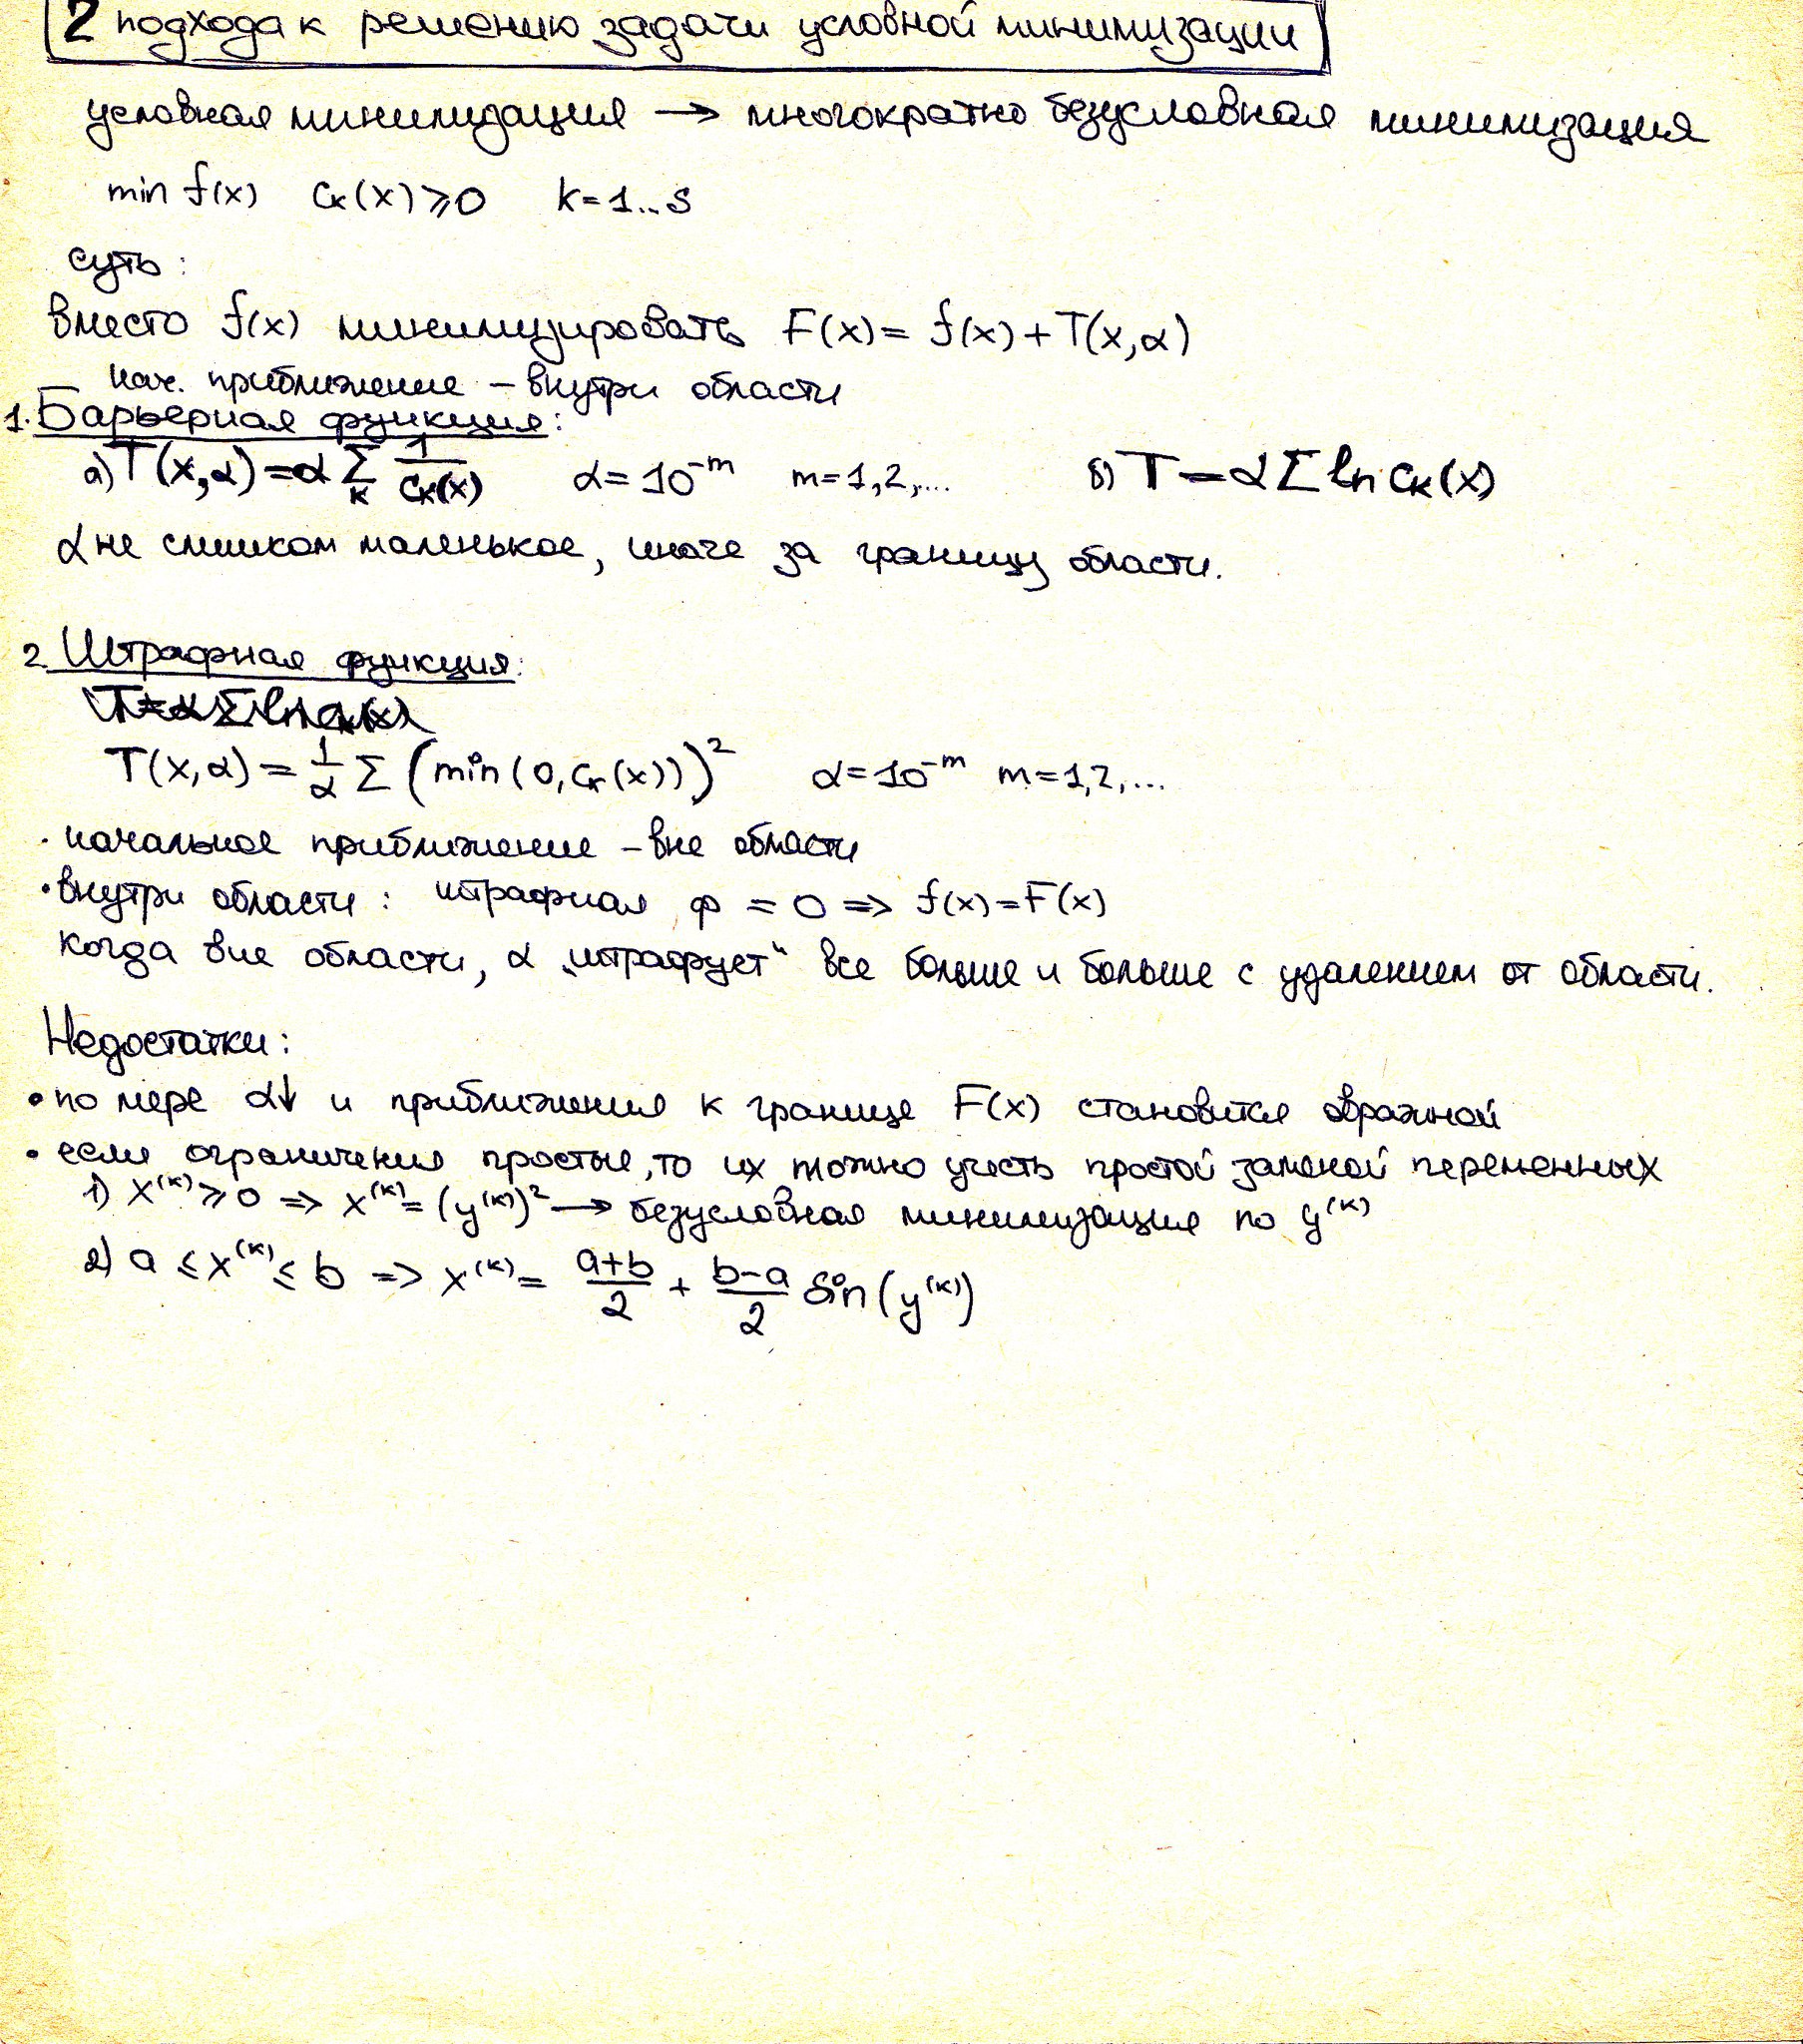 2 подхода к решению задачи условной минимизации
условная минимизация → многократно безусловная минимизация
min f(x) Cк(x)⩾0 k=1...s
суть:
вместо f(x) минимизировать F(x)= f(x)+T(x,α)
нач. приближение – внутри области
1. Барьерная функция:
а) T(x,α)=α ∑к 1/Cк(x) α=10⁻ᵐ m=1,2,... б) T=−α∑ ln Cк(x)
α не слишком маленькое, иначе за границу области.
2. Штрафная функция:
T=−α∑ ln Cк(x)
T(x,α)= 1/α ∑ (min(0,Cк(x)))² α=10⁻ᵐ m=1,2,...
· начальное приближение – вне области
· внутри области: штрафная ф = 0 => f(x)=F(x)
когда вне области, α „штрафует“ все больше и больше с удалением от области.
Недостатки:
• по мере α↓ и приближения к границе F(x) становится овражной
• если ограничения простые, то их можно учесть простой заменой переменных
1) x⁽ᴷ⁾⩾0 => x⁽ᴷ⁾=(y⁽ᴷ⁾)² → безусловная минимизация по y⁽ᴷ⁾
2) a ≤ x⁽ᴷ⁾ ≤ b => x⁽ᴷ⁾= (a+b)/2 + (b−a)/2 sin(y⁽ᴷ⁾)